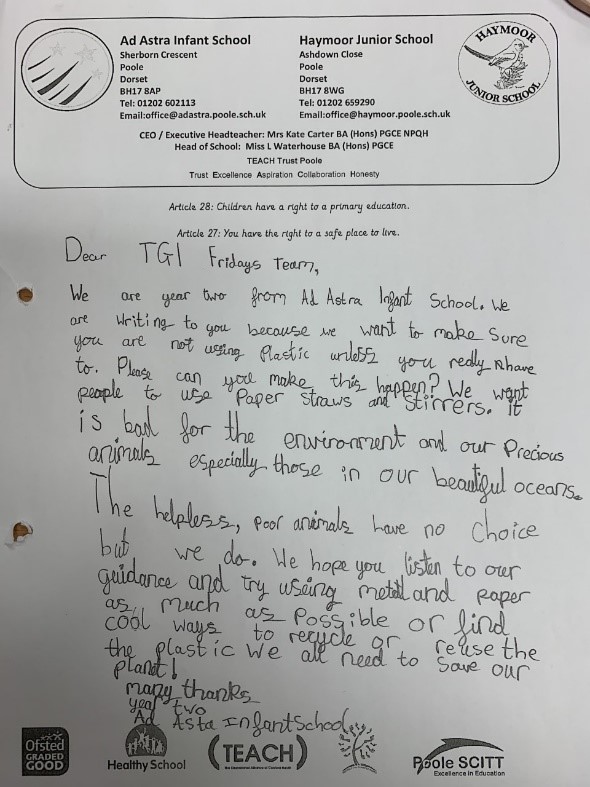 Ad Astra Infant School
Sherborn Crescent
Poole
Dorset
BH17 8AP
Tel: 01202 602113
Email:office@adastra.poole.sch.uk
Haymoor Junior School
Ashdown Close
Poole
Dorset
BH17 8WG
Tel: 01202 659290
Email:office@haymoor.poole.sch.uk
HAYMOOR
JUNIOR SCHOOL
CEO / Executive Headteacher: Mrs Kate Carter BA (Hons) PGCE NPQH
Head of School: Miss L Waterhouse BA (Hons) PGCE
TEACH Trust Poole
Trust Excellence Aspiration Collaboration Honesty
Article 28: Children have a right to a primary education.
Article 27: You have the right to a safe place to live.
Dear TGI Fridays Team,
We are year two from Ad Astra Infant School. We
are writing to you because we want to make sure
you are not using Plastic unless you really have
to. Please can you make this happen? We want
people to use Paper straws and stirrers. It
is bad for the environment and our Precious
animals especially those in our beautiful oceans.
The helpless, poor animals have no choice
but we do. We hope you listen to our
guidance and try useing metal and paper
as much as possible or find
cool ways to recycle or reuse the
the plastic We all need to save our
planet!
many thanks
year two
Ad Asta Infant School
Ofsted
GRADED
GOOD
Healthy School
(TEACH)
Poole SCITT
Excellence in Education